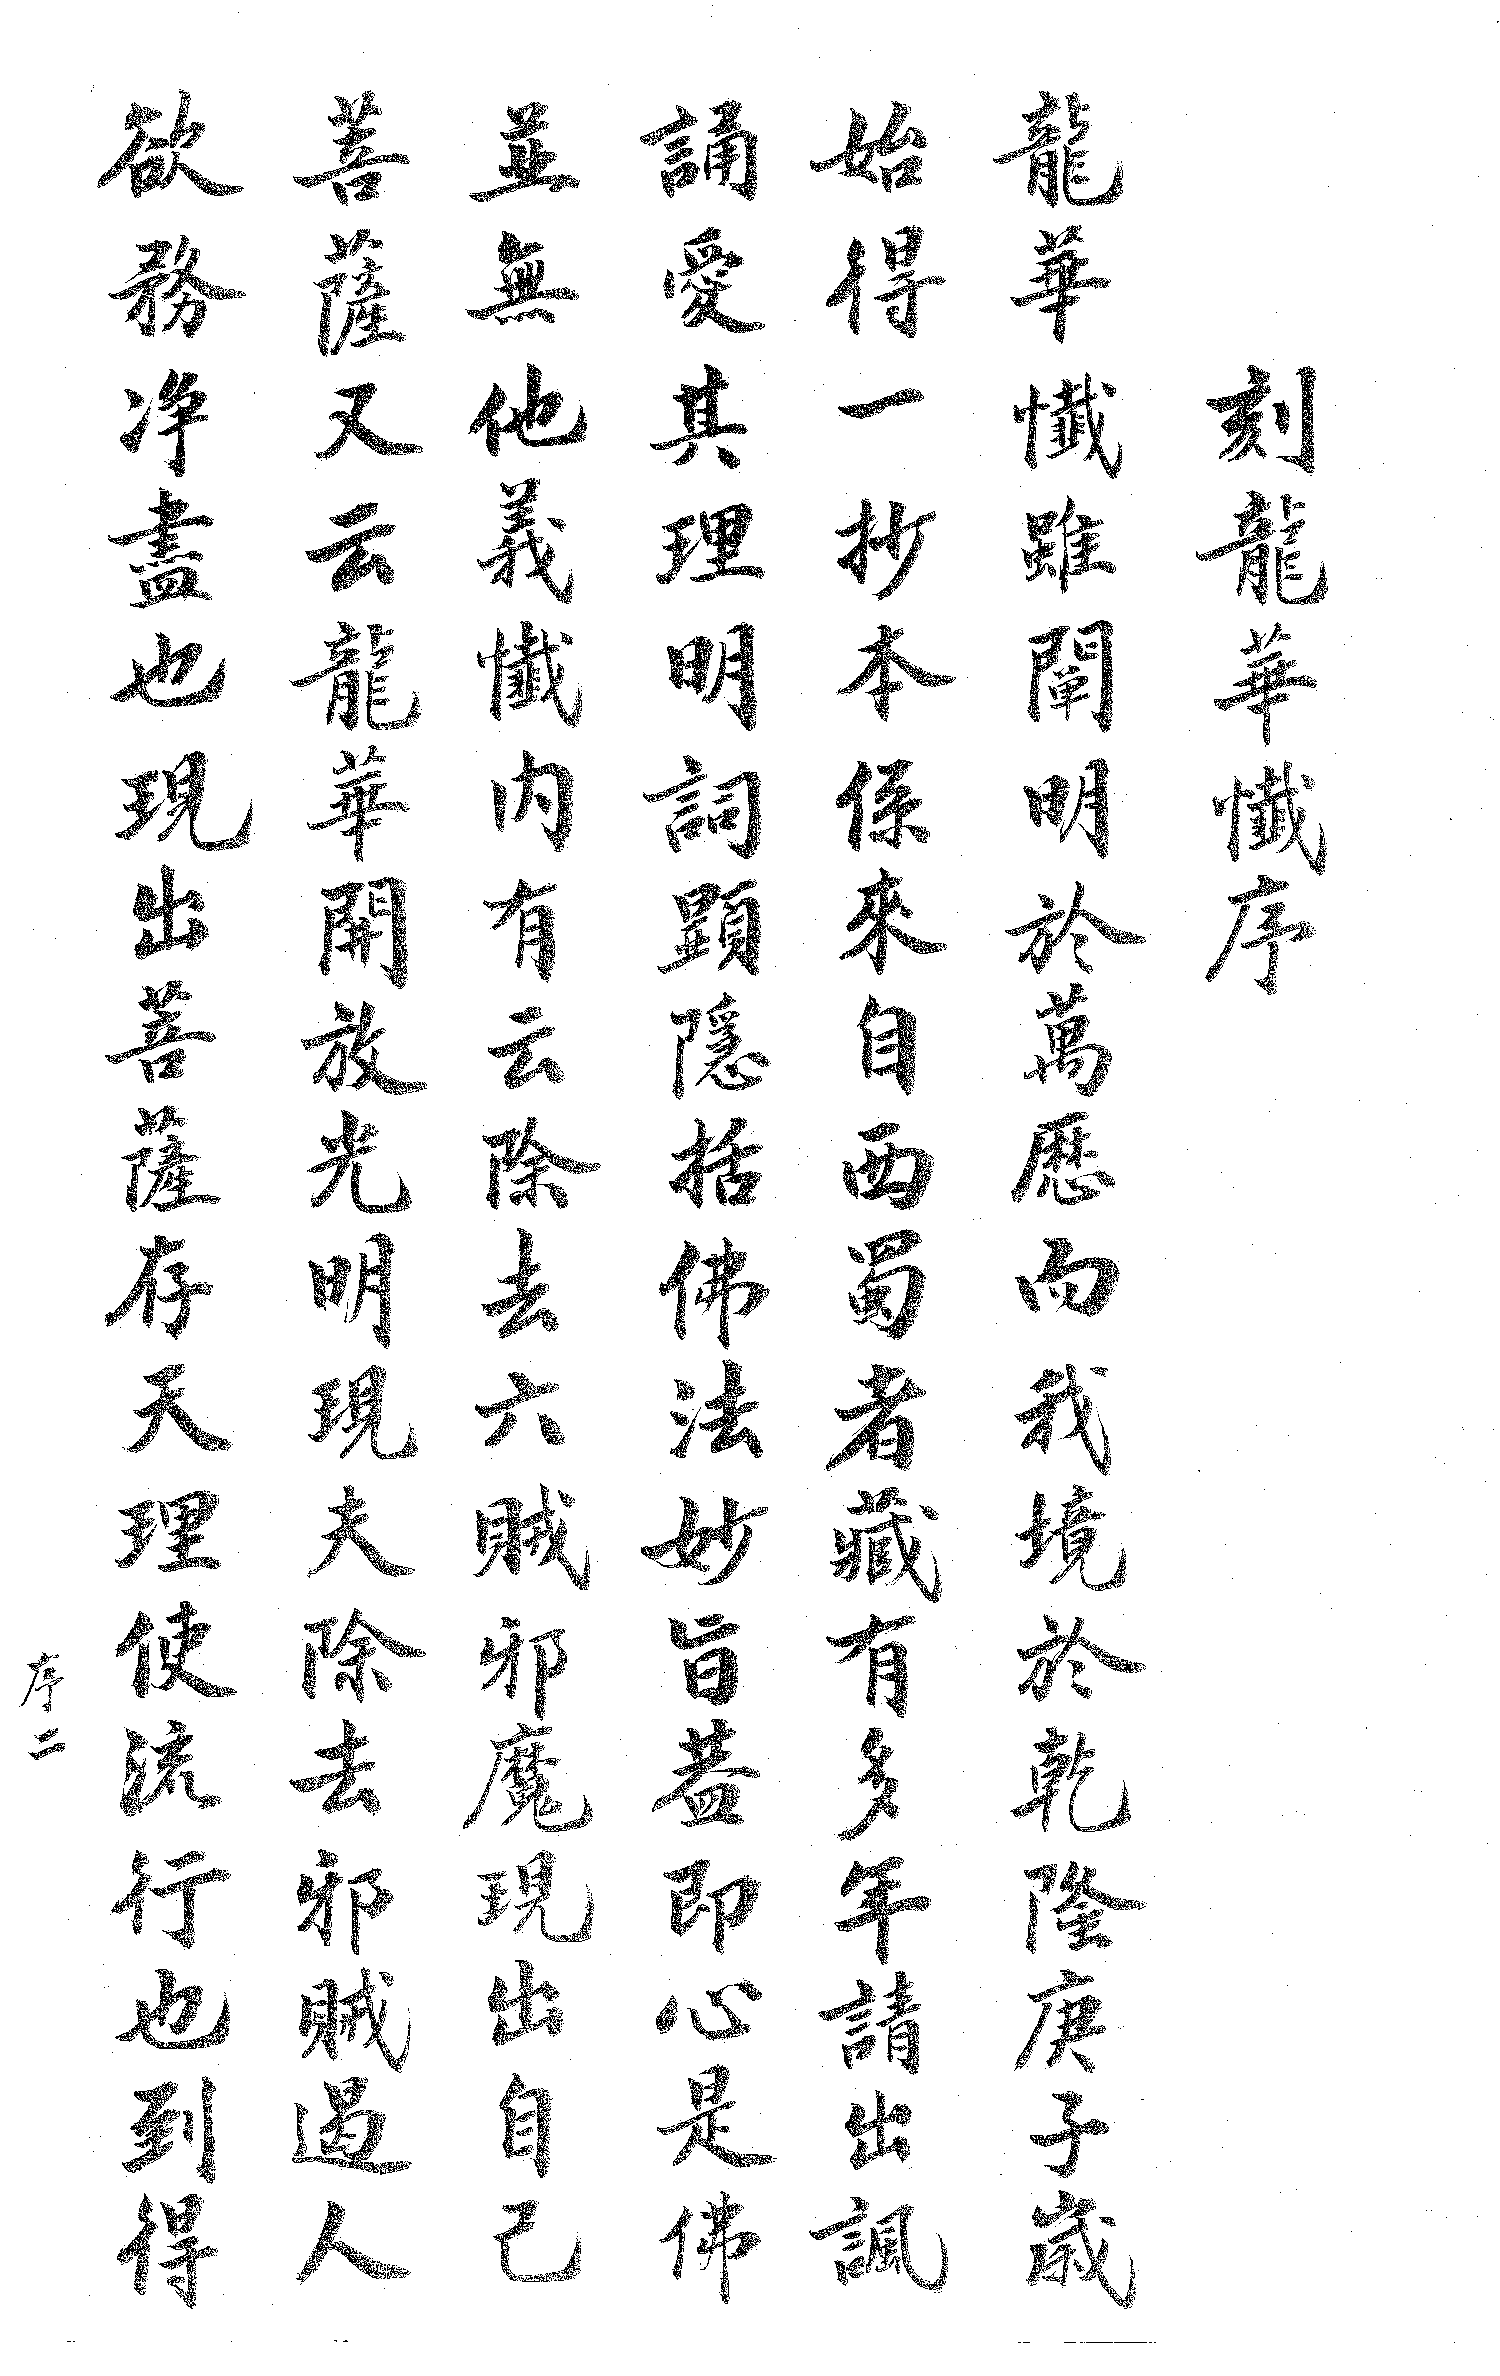 刻龍華懺序
龍華懺雖闡明於萬歷而我境於乾隆庚子歲
始得一抄本係來自西蜀者藏有多年請出諷
誦愛其理明詞顯隱括佛法妙旨葢即心是佛
並無他義懺內有云除去六賊邪魔現出自己
菩薩又云龍華開放光明現夫除去邪賊遏人
欲務净盡也現出菩薩存天理使流行也到得
序二